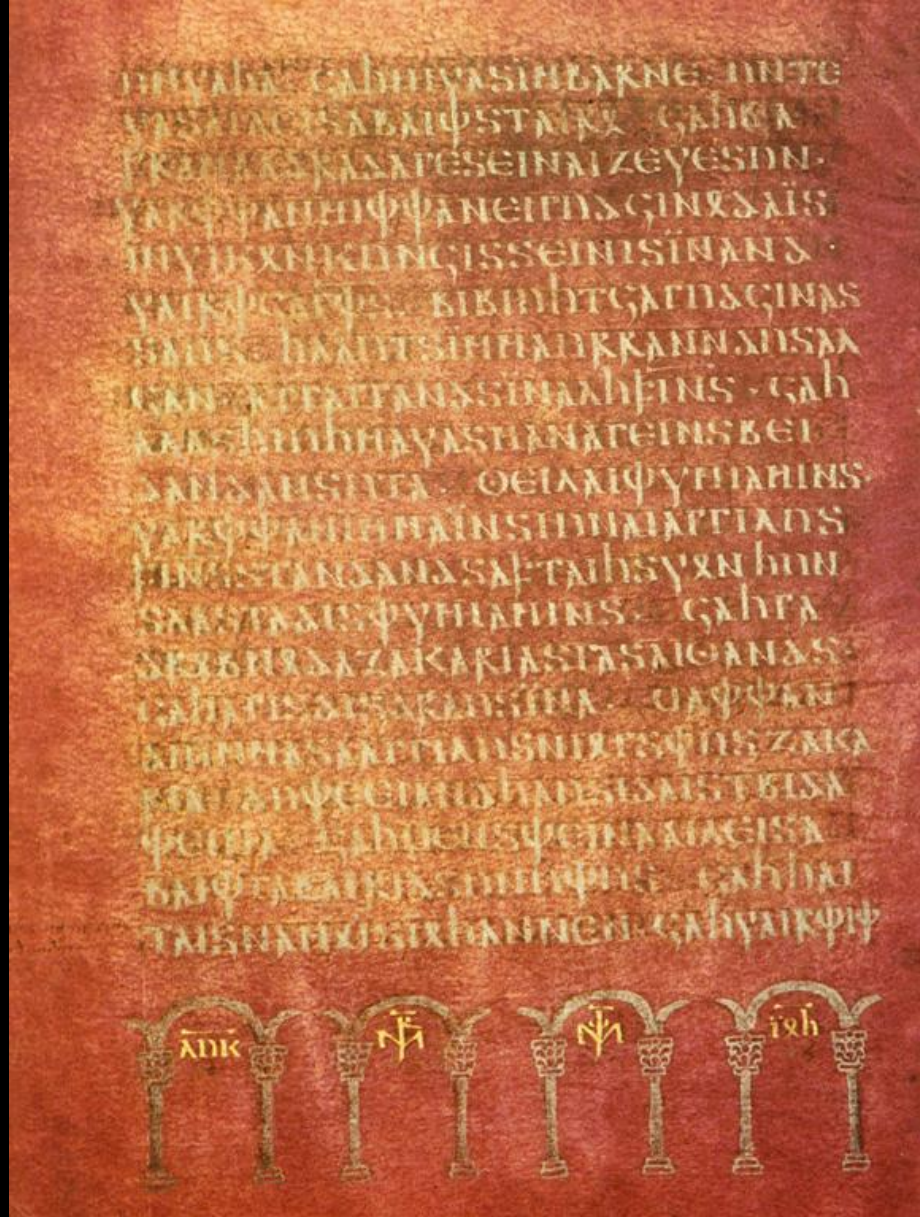 𐌿𐌽𐍅𐌰𐌷𐌰 · 𐌾𐌰𐌷 𐌽𐌹 𐍅𐌰𐍃 𐌹𐌼 𐌱𐌰𐍂𐌽𐌴 · 𐌿𐌽𐍄𐌴
𐍅𐌰𐍃 𐌰𐌹𐌻𐌴𐌹𐍃𐌰𐌱𐌰𐌹𐌸 𐍃𐍄𐌰𐌹𐍂𐍉 · 𐌾𐌰𐌷 𐌱𐌰
𐍆𐍂𐌰𐌼𐌰𐌻𐌳𐍂𐌰 𐌳𐌰𐌲𐌴 𐍃𐌴𐌹𐌽𐌰𐌹𐌶𐌴 𐍅𐌴𐍃𐌿𐌽 ·
𐍅𐌰𐍂𐌸 𐌸𐌰𐌽 𐌼𐌹𐌸𐌸𐌰𐌽𐌴𐌹 𐌲𐌿𐌳𐌾𐌹𐌽𐍉𐌳𐌰 𐌹̈𐍃
𐌹𐌽 𐍅𐌹𐌺𐍉𐌽 𐌺𐌿𐌽𐌾𐌹𐍃 𐍃𐌴𐌹𐌽𐌹𐍃 𐌹̈𐌽 𐌰𐌽𐌳
𐍅𐌰𐌹𐍂𐌸𐌾𐌰 𐌲𐌸𐍃 · 𐌱𐌹 𐌱𐌹𐌿𐌷𐍄𐌾𐌰 𐌲𐌿𐌳𐌾𐌹𐌽𐌰𐍃
𐍃𐌰𐌿𐍃 · 𐌷𐌻𐌰𐌿𐍄𐍃 𐌹𐌼𐌼𐌰 𐌿𐍂𐍂𐌰𐌽𐌽 𐌳𐌿 𐍃𐌰𐌻
𐌾𐌰𐌽 · 𐌰𐍄𐌲𐌰𐌲𐌲𐌰𐌽𐌳𐍃 𐌹𐌽 𐌰𐌻𐌷 𐍆𐌹̅𐌽𐍃 · 𐌾𐌰𐌷
𐌰𐌻𐌻𐍃 𐌷𐌹𐌿𐌷𐌼𐌰 𐍅𐌰𐍃 𐌼𐌰𐌽𐌰𐌲𐌴𐌹𐌽𐍃 𐌱𐌴𐌹
𐌳𐌰𐌽𐌳𐌰𐌽𐍃 𐌿𐍄𐌰 · 𐍈𐌴𐌹𐌻𐌰𐌹 𐌸𐍅𐌼𐌹𐌰𐌼𐌹𐌽𐍃 ·
𐍅𐌰𐍂𐌸 𐌸𐌰𐌽 𐌹𐌼𐌼𐌰 𐌹̈𐌽 𐍃𐌹𐌿𐌽𐌰𐌹 𐌰𐌲𐌲𐌹𐌻𐌿𐍃
𐍆𐌹𐌽𐍃 𐍃𐍄𐌰𐌽𐌳𐌰𐌽𐌳𐍃 𐌰𐍆 𐍄𐌰𐌹𐌷𐍃𐍅𐍉𐌽 𐌷𐌿𐌽
𐍃𐌻𐌰𐍃𐍄𐌰𐌳𐌹𐍃 𐌸𐍅𐌼𐌹𐌰𐌼𐌹𐌽𐍃 · 𐌾𐌰𐌷 𐌲𐌰
𐌳𐍂𐍉𐌱𐌽𐍉𐌳𐌰 𐌶𐌰𐌺𐌰𐍂𐌹𐌰𐍃 𐌲𐌰𐍃𐌰𐌹𐍈𐌰𐌽𐌳𐍃 ·
𐌾𐌰𐌷 𐌰𐌲𐌹𐍃 𐌳𐌹𐍃𐌳𐍂𐌰𐌿𐍃 𐌹𐌽𐌰 · 𐌵𐌰𐌸 𐌸𐌰𐌽
𐌳𐌿 𐌹𐌼𐌼𐌰 𐍃𐌰 𐌰𐌲𐌲𐌹𐌻𐌿𐍃 𐌽𐌹 𐍉𐌲𐍃 𐌸𐌿𐍃 𐌶𐌰𐌺𐌰
𐍂𐌹𐌰 𐌳𐌿𐌸𐌴 𐌴𐌹 𐌰𐌽𐌳𐌷𐌰𐌿𐍃𐌹𐌳𐌰 𐌹𐍃𐍄 𐌱𐌹𐌳𐌰
𐌸𐌴𐌹𐌽𐌰 · 𐌾𐌰𐌷 𐌵𐌴𐌽𐍃 𐌸𐌴𐌹𐌽𐌰 𐌰𐌹𐌻𐌴𐌹𐍃𐌰
𐌱𐌰𐌹𐌸 𐌲𐌰𐌱𐌰𐌹𐍂𐌹𐌳 𐍃𐌿𐌽𐌿 𐌸𐌿𐍃 · 𐌾𐌰𐌷 𐌷𐌰𐌹
𐍄𐌰𐌹𐍃 𐌽𐌰𐌼𐍉 𐌹𐍃 𐌹̈𐍉𐌷𐌰𐌽𐌽𐌴𐌽 · 𐌾𐌰𐌷 𐍅𐌰𐌹𐍂𐌸𐌹𐌸
𐌻𐌿𐌺 𐌹̈𐍉𐌷